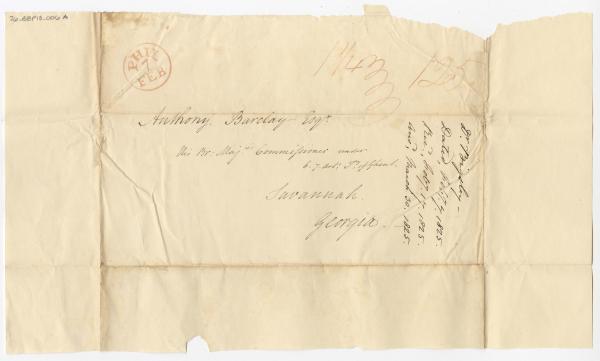 76.BBP10.006A
PHIL
7
FEB
125
Anthony Barclay Esqr.
His Br: Maj's Commissioner under
6. 7. Art:
Savannah.
Georgia.
Dr.
Dated, Feby. 7. 1825.
Recd. Feby. 17. 1825.
Answd. March 30. 1825.